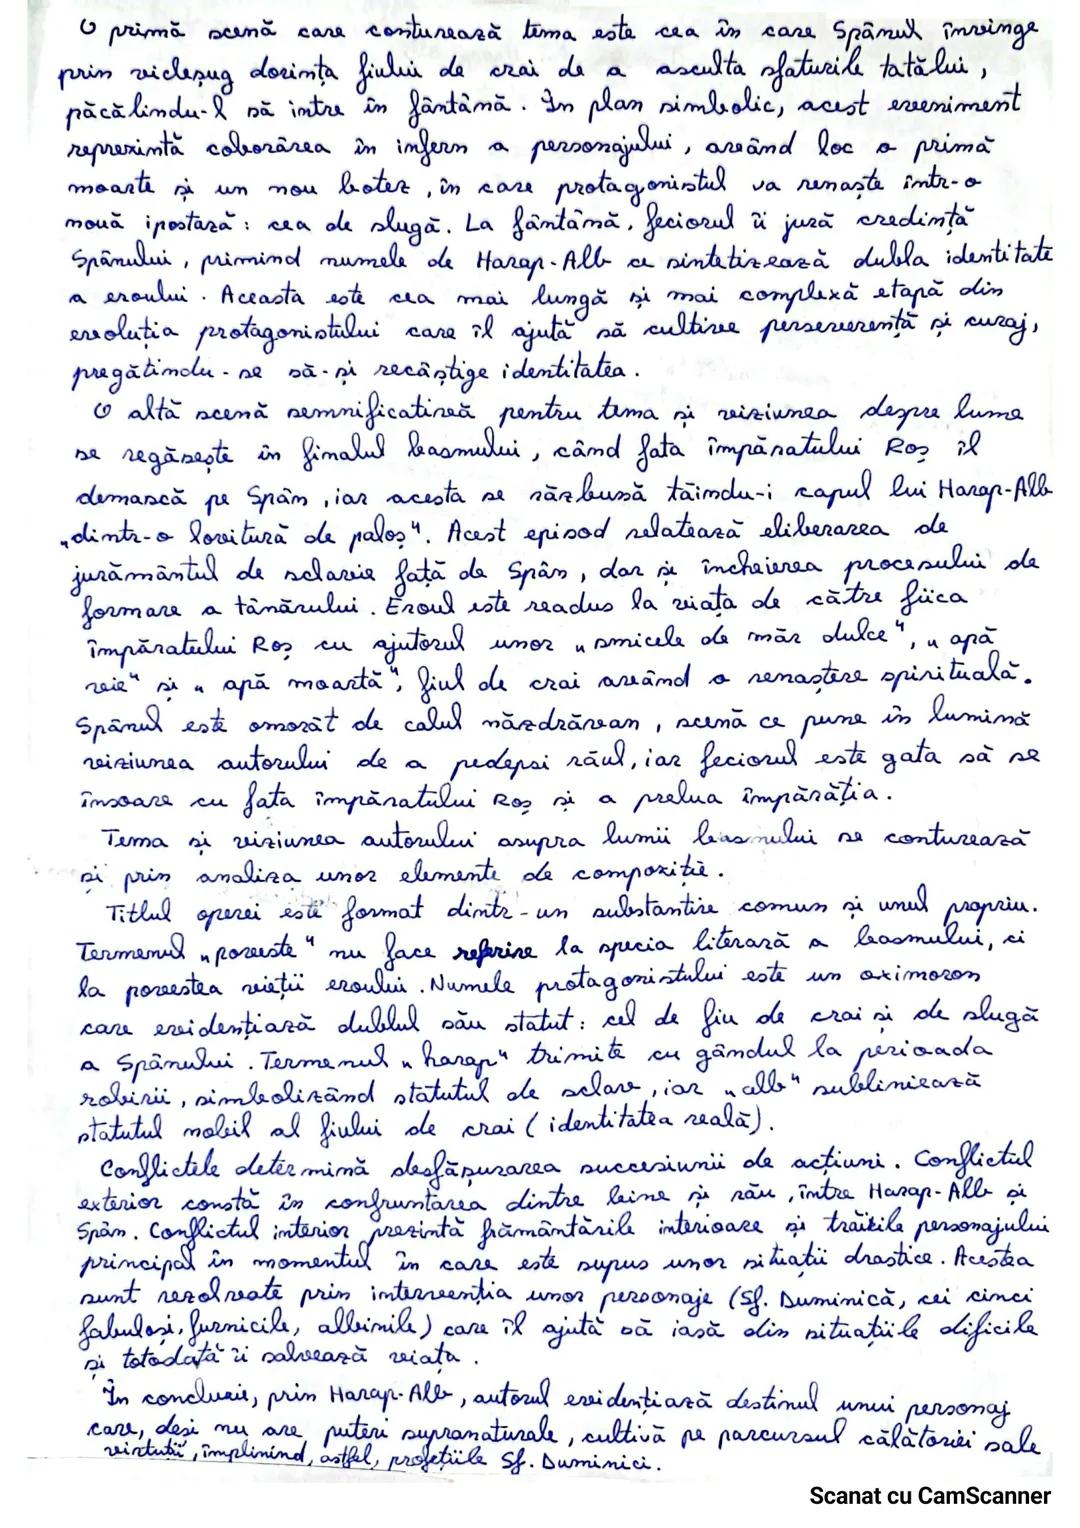 O primă scenă care conturează tema este cea în care Spânul învinge
prin vicleșug dorința fiului de crai de a asculta sfaturile tatălui,
păcălindu-l să intre în fântână. În plan simbolic, acest eveniment
reprezintă coborârea în infern a personajului, având loc o primă
moarte și un nou botez, în care protagonistul va renaște într-o
nouă ipostază: cea de slugă. La fântână, feciorul îi jură credință
Spânului, primind numele de Harap-Alb ce sintetizează dubla identitate
a eroului. Aceasta este cea mai lungă și mai complexă etapă din
evoluția protagonistului care îl ajută să cultive perseverență și curaj,
pregătindu-se să-și recâștige identitatea.
O altă scenă semnificativă pentru tema și viziunea despre lume
se regăsește în finalul basmului, când fata împăratului Roș îl
demască pe Spân, iar acesta se răzbună tăindu-i capul lui Harap-Alb
„dintr-o lovitură de paloș". Acest episod relatează eliberarea de
jurământul de sclavie față de Spân, dar și încheierea procesului de
formare a tânărului. Eroul este readus la viața de către fiica
împăratului Roș cu ajutorul unor „smicele de măr dulce", „apă
vie" și „apă moartă", fiul de crai având o renaștere spirituală.
Spânul este omorât de calul năzdrăvan, scenă ce pune în lumină
viziunea autorului de a pedepsi răul, iar feciorul este gata să se
însoare cu fata împăratului Roș și a prelua împărăția.
Tema și viziunea autorului asupra lumii basmului se conturează
și prin analiza unor elemente de compoziție.
Titlul operei este format dintr-un substantiv comun și unul propriu.
Termenul „poveste" nu face referire la specia literară a basmului, ci
la povestea vieții eroului. Numele protagonistului este un oximoron
care evidențiază dublul său statut: cel de fiu de crai și de slugă
a Spânului. Termenul „harap" trimite cu gândul la perioada
robirii, simbolizând statutul de sclav, iar „alb" subliniează
statutul nobil al fiului de crai (identitatea reală).
Conflictele determină desfășurarea succesiunii de acțiuni. Conflictul
exterior constă în confruntarea dintre bine și rău, între Harap-Alb și
Spân. Conflictul interior prezintă frământările interioare și trăirile personajului
principal în momentul în care este supus unor situații drastice. Acestea
sunt rezolvate prin intervenția unor personaje (Sf. Duminică, cei cinci
fabuloși, furnicile, albinile) care îl ajută să iasă din situațiile dificile
și totodată îi salvează viața.
În concluzie, prin Harap-Alb, autorul evidențiază destinul unui personaj
care, deși nu are puteri supranaturale, cultivă pe parcursul călătoriei sale
virtuții, împlinind, astfel, profețiile Sf. Duminici.
Scanat cu CamScanner